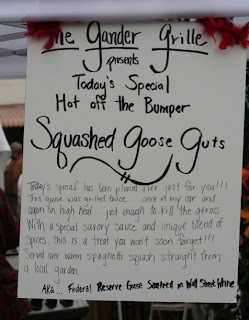 The Gander Grille
presents
Today's Special
Hot off the Bumper
Squashed Goose Guts
Today's special has been plowed over just for you!!!
This goose was grilled twice... once in my car and
again on high heat... just enough to kill the germs.
With a special savory sauce and unique blend of
spices, this is a treat you won't soon forget!!!
Served over warm spaghetti squash straight from
a local garden.
AKA... Federal Reserve Goose Sauteed in Wall Street Whine